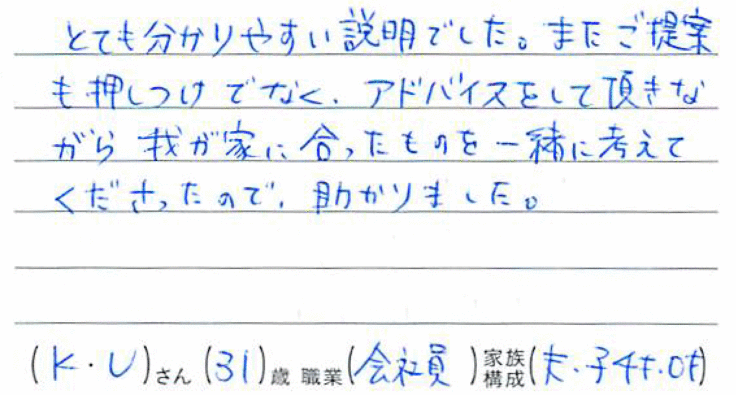 とても分かりやすい説明でした。またご提案
も押しつけでなく、アドバイスをして頂きな
がら我が家に合ったものを一緒に考えて
くださったので、助かりました。
(K・U)さん(31)歳 職業(会社員)家族構成(夫・子4才・0才)